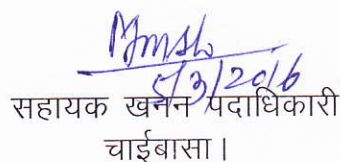 5/3/2016
सहायक खनन पदाधिकारी
चाईबासा।